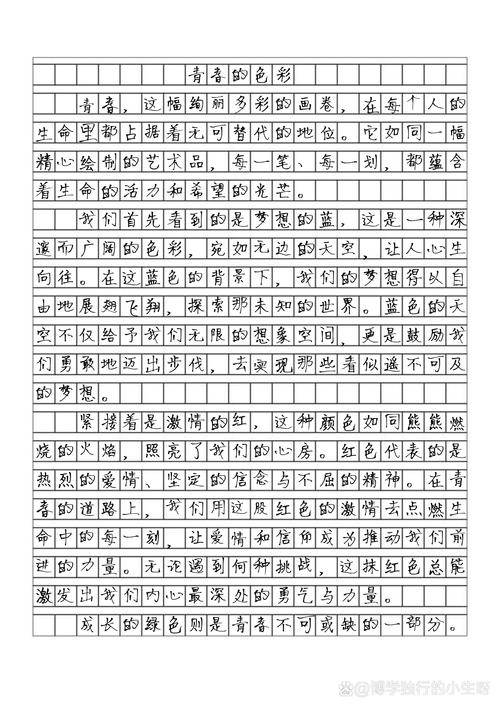 青春的色彩
青春，这幅绚丽多彩的画卷，在每个人的
生命里都占据着无可替代的地位。它如同一幅
精心绘制的艺术品，每一笔、每一划，都蕴含
着生命的活力和希望的光芒。
我们首先看到的是梦想的蓝，这是一种深
邃而广阔的色彩，宛如无边的天空，让人心生
向往。在这蓝色的背景下，我们的梦想得以自
由地展翅飞翔，探索那未知的世界。蓝色的天
空不仅给予我们无限的想象空间，更是鼓励我
们勇敢地迈出步伐，去实现那些看似遥不可及
的梦想。
紧接着是激情的红，这种颜色如同熊熊燃
烧的火焰，照亮了我们的心房。红色代表的是
热烈的爱情、坚定的信念与不屈的精神。在青
春的道路上，我们用这股红色的激情去点燃生
命中的每一刻，让爱情和信仰成为推动我们前
进的力量。无论遇到何种挑战，这抹红色总能
激发出我们内心最深处的勇气与力量。
成长的绿色则是青春不可或缺的一部分。
@博学独行的小生呀